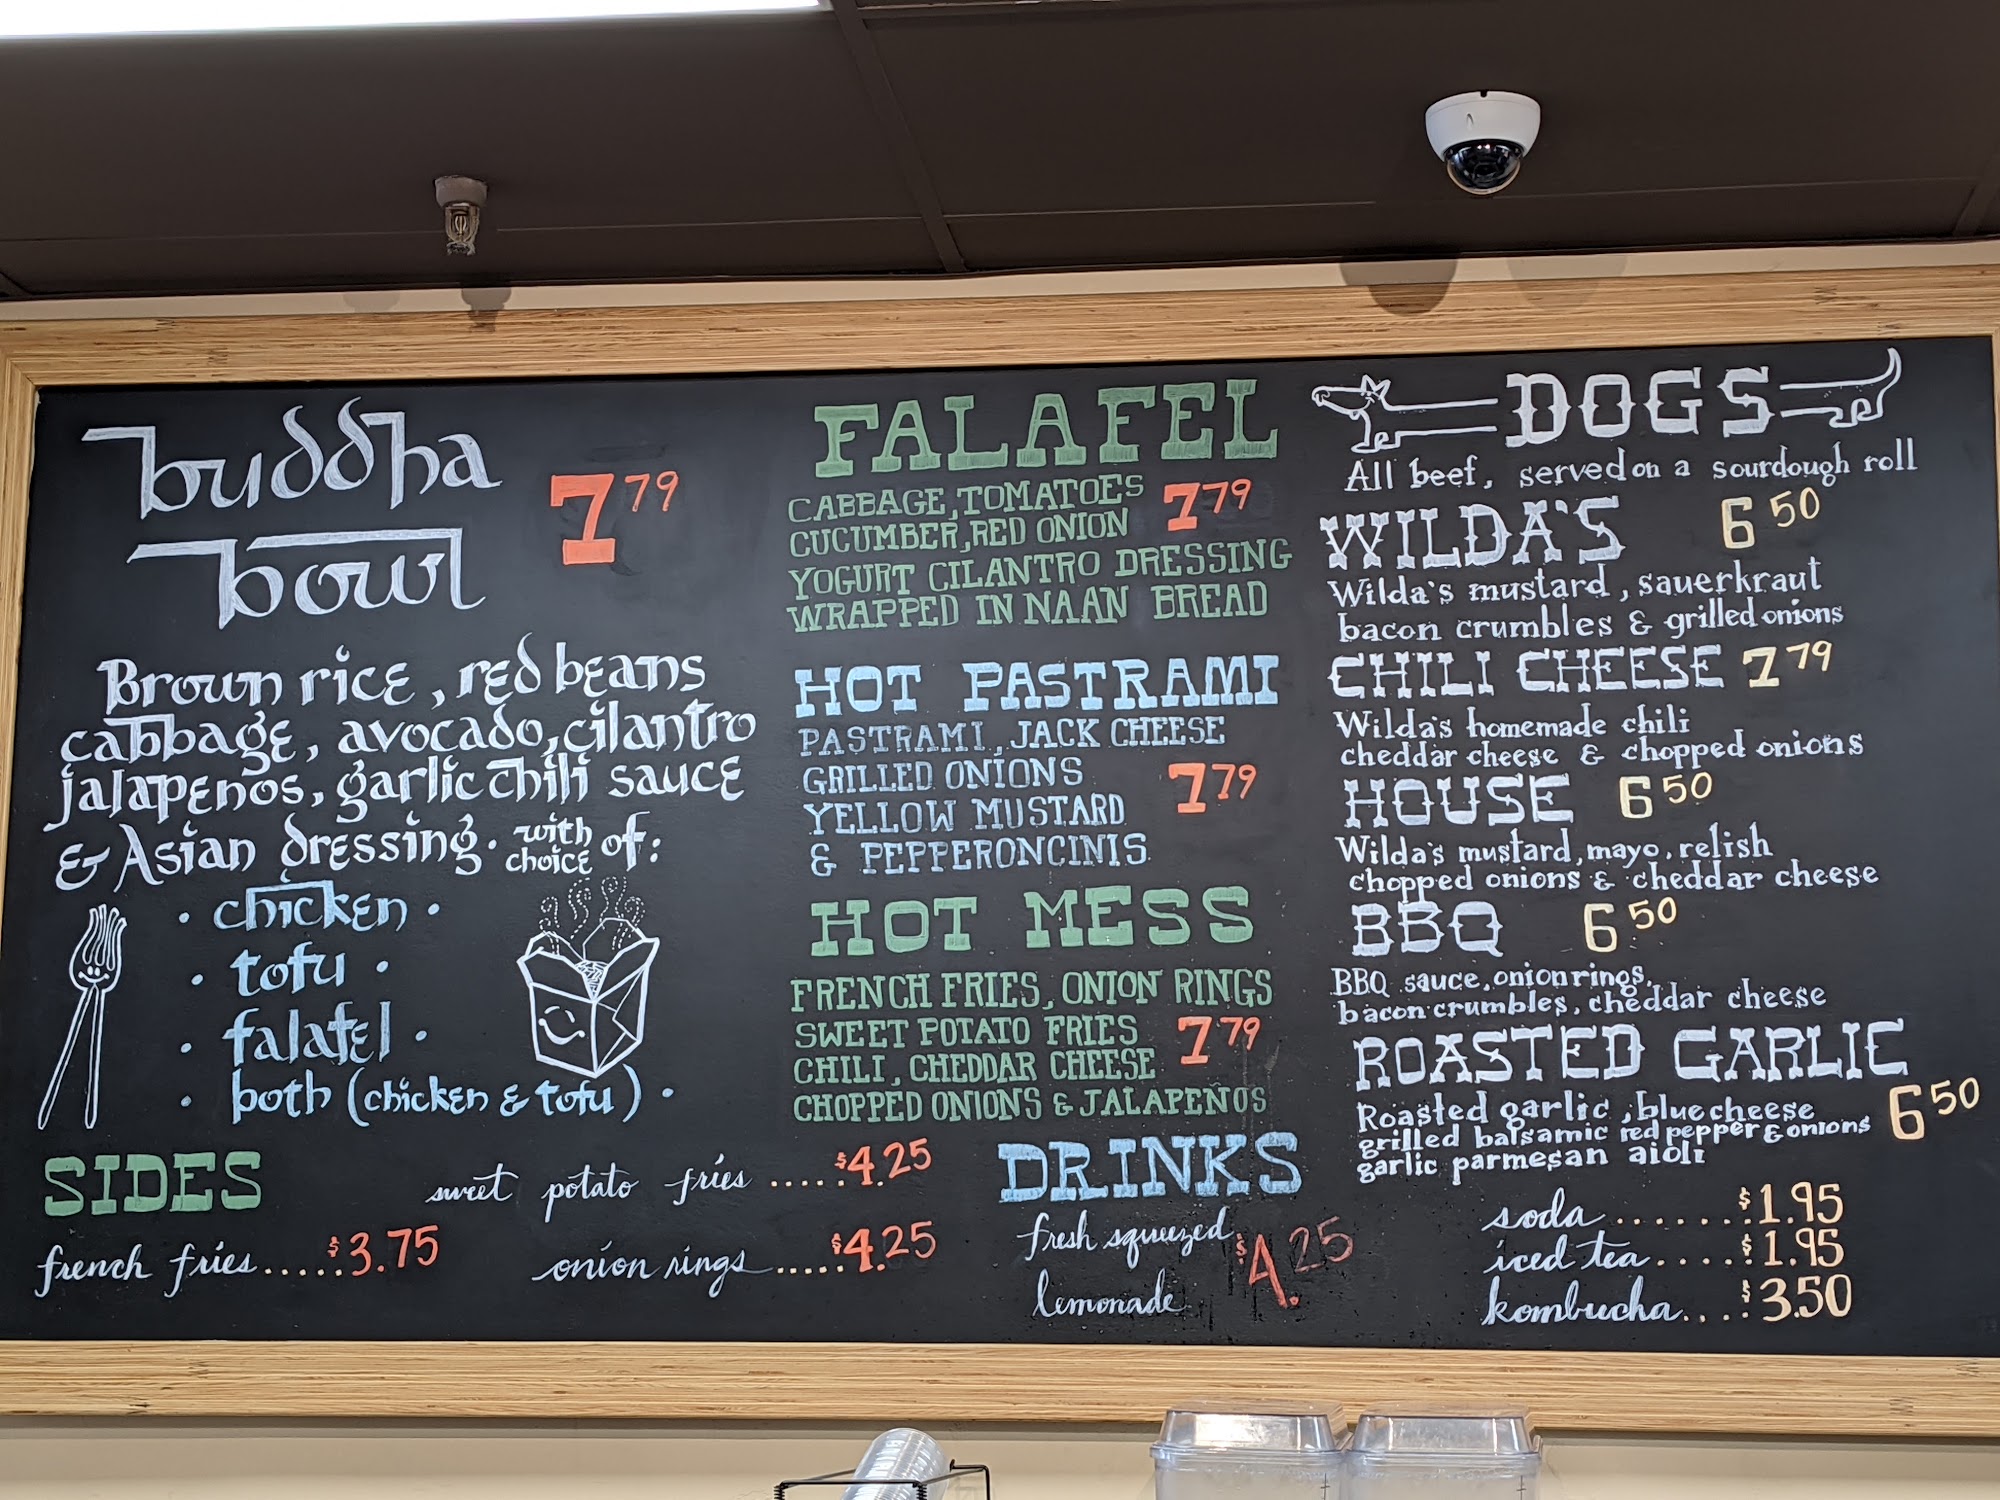 buddha
bowl
7 79
Brown rice, red beans
cabbage, avocado, cilantro
jalapenos, garlic chili sauce
& Asian dressing. with choice of:
• chicken •
• tofu •
• falafel •
• both (chicken & tofu) •
FALAFEL
CABBAGE, TOMATOES
CUCUMBER, RED ONION
7 79
YOGURT CILANTRO DRESSING
WRAPPED IN NAAN BREAD
HOT PASTRAMI
PASTRAMI, JACK CHEESE
GRILLED ONIONS
YELLOW MUSTARD
7 79
& PEPPERONCINIS
HOT MESS
FRENCH FRIES, ONION RINGS
SWEET POTATO FRIES
CHILI, CHEDDAR CHEESE
7 79
CHOPPED ONIONS & JALAPEÑOS
DOGS
All beef, served on a sourdough roll
WILDA'S 6 50
Wilda's mustard, sauerkraut
bacon crumbles & grilled onions
CHILI CHEESE 7 79
Wilda's homemade chili
cheddar cheese & chopped onions
HOUSE 6 50
Wilda's mustard, mayo, relish
chopped onions & cheddar cheese
BBQ 6 50
BBQ sauce, onion rings,
bacon crumbles, cheddar cheese
ROASTED GARLIC
Roasted garlic, blue cheese
grilled balsamic red pepper & onions
garlic parmesan aioli
6 50
SIDES
french fries.....$3.75
sweet potato fries.....$4.25
onion rings.....$4.25
DRINKS
fresh squeezed
lemonade
$4.25
soda.......$1.95
iced tea....$1.95
kombucha...$3.50